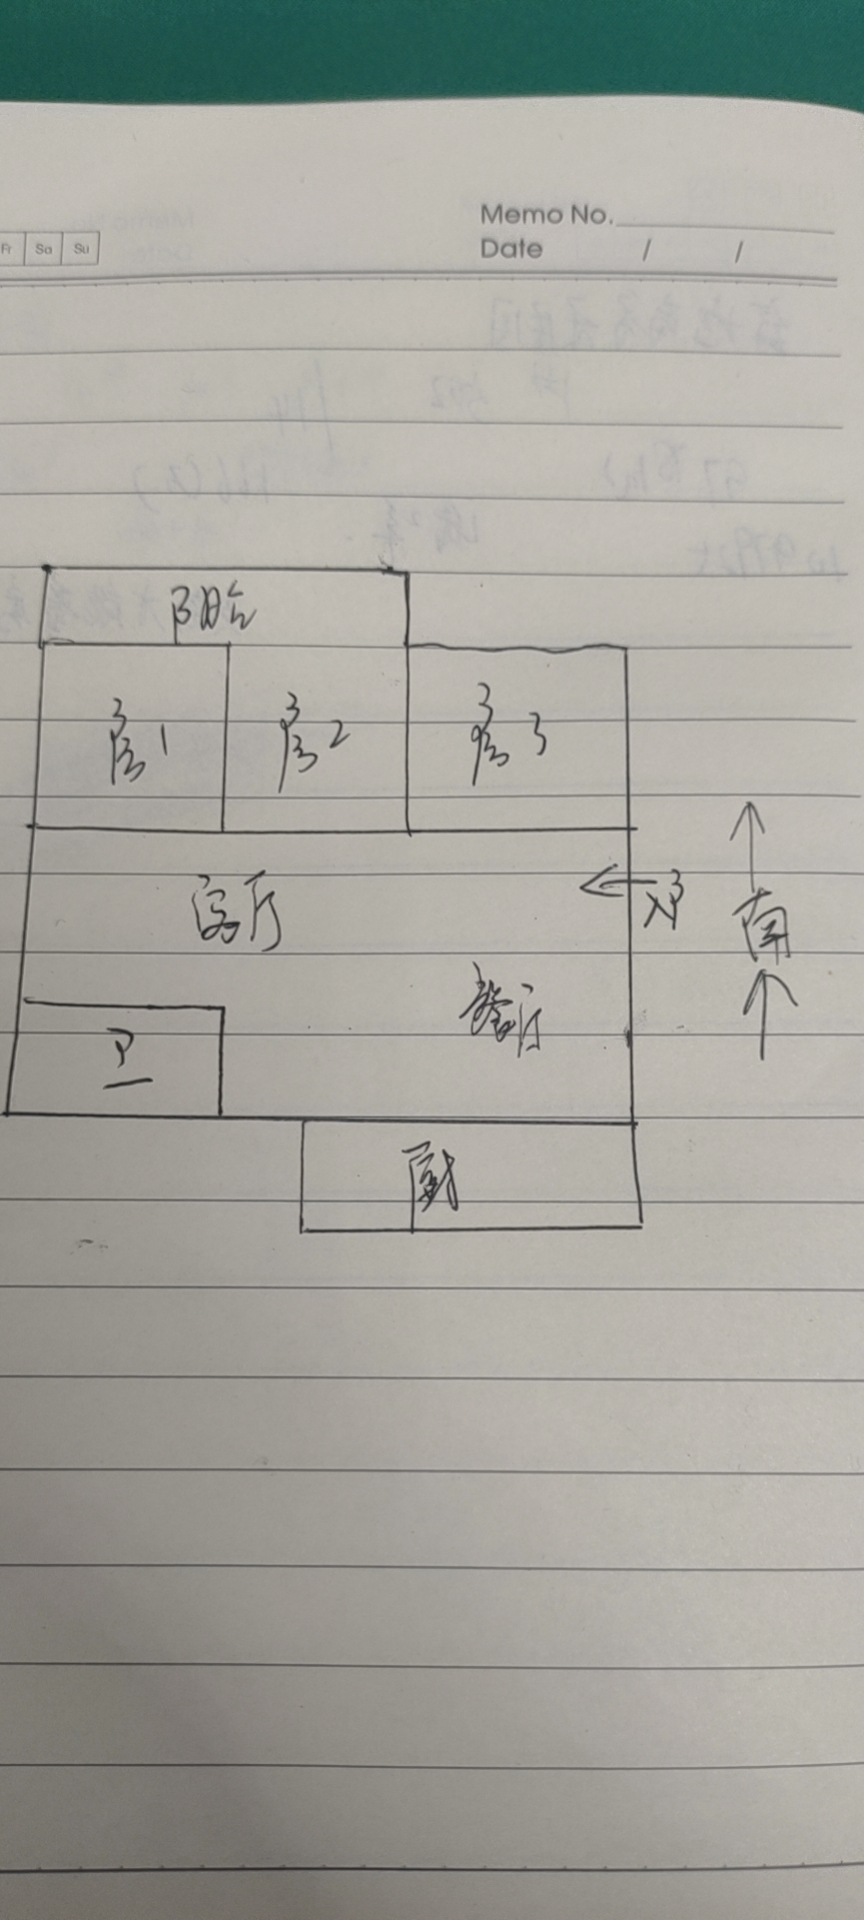 Memo No.
Fr Sa Su
Date / /
阳台
房1 房2 房3
客厅
入户
南
餐厅
卫
厨